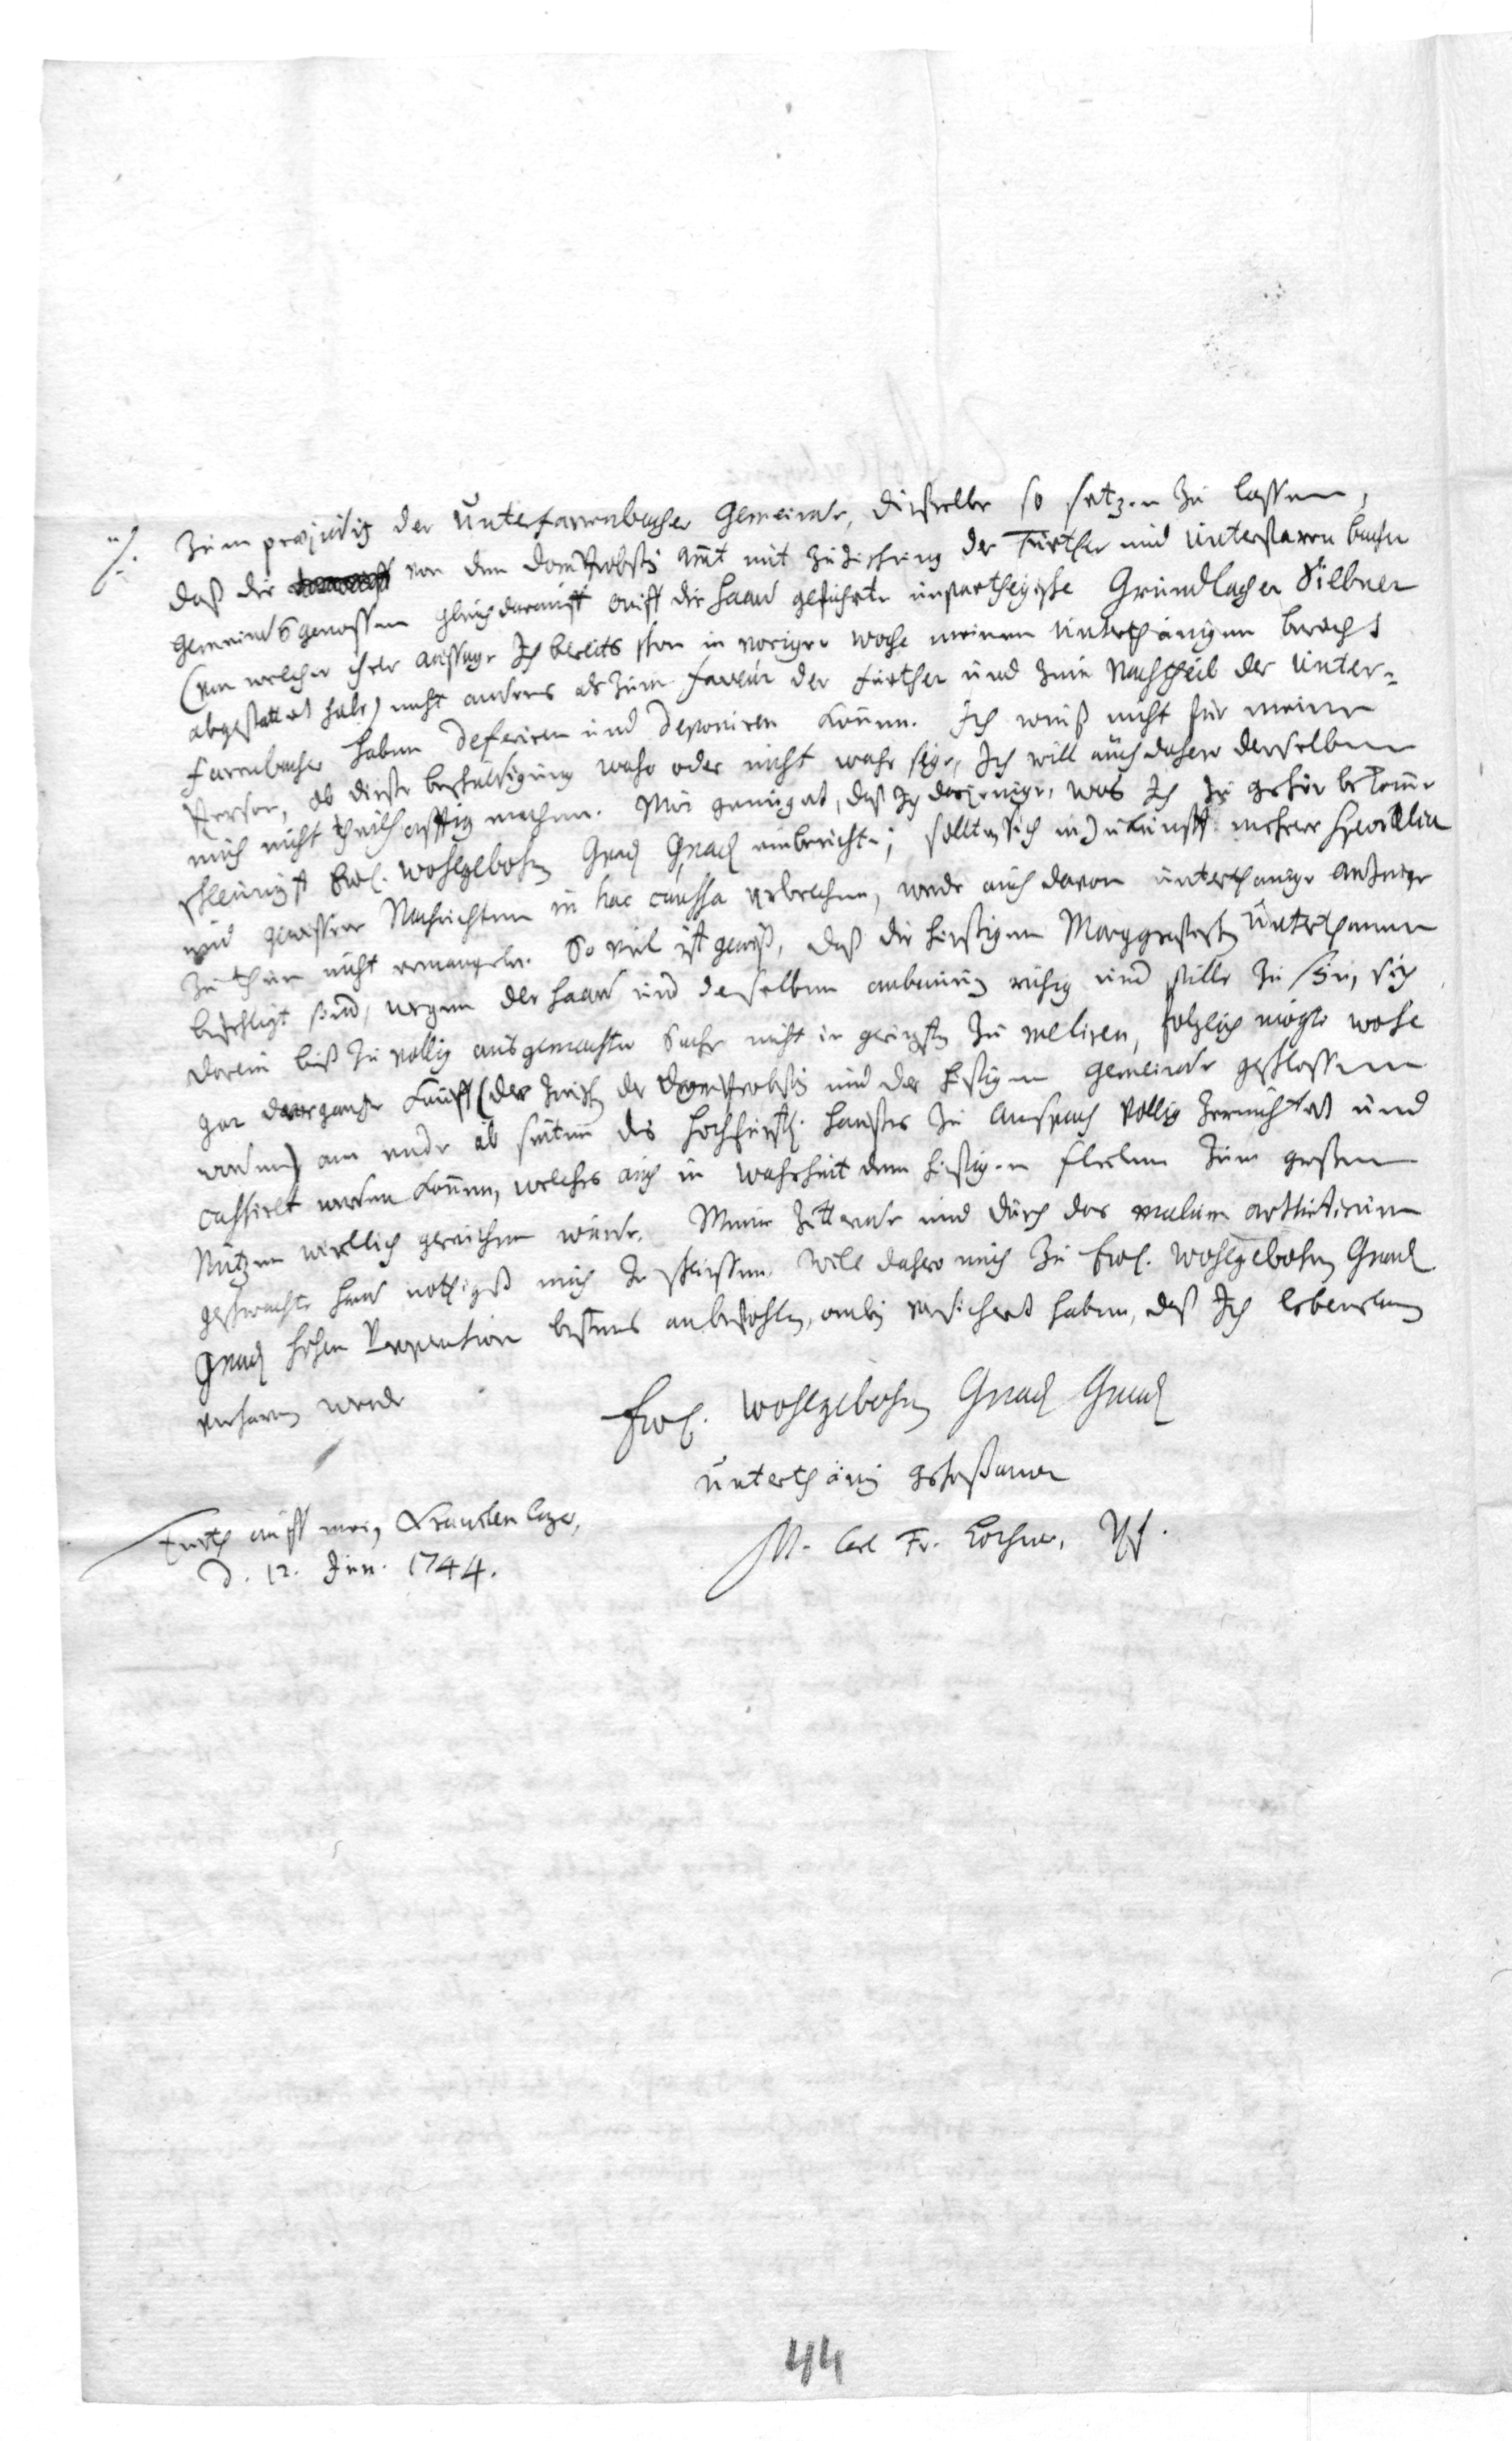 ·/. Zum præjudiz der Unterfarrnbacher Gemeinde, dieselbe so setzen zu lassen,
daß die von dem DomProbstey Amt mit Zuziehung der Fürther und Unterfarrnbacher
Gemeinds genossen gleich darauff auff die Haard geführte unpartheyische Gründlacher Siebner
(von welcher ihrer aussage Ich bereits schon in voriger woche meinen unterthänigen bericht
abgestattet habe) nicht anders als zum faveur der Fürther und zum Nachtheil der Unter-
farrnbacher haben deferiren und deponiren können. Ich weiß nicht für meine
Person, ob diese beschuldigung wahr oder nicht wahr seye, Ich will auch daher derselben
mich nicht theilhafftig machen. Mir genüget, daß Ich dasjenige, was Ich zu gehör bekomme
schleunigst Ew. Wohlgebohrn Gnad Gnad einberichte; sollten sich in Zukunfft mehrere Specialia
und gewissere Nachrichten in hac caussa erbrechen, werde auch davon unterthänige Anzeige
zu thun nicht ermangeln. So viel ist gewiß, daß die hiesigen Marggräfischen Unterthanen
befehligt sind, wegen der Haard und derselben anbauung ruhig und stille zu seyn, sich
darein biß zu völlig ausgemachter Sache nicht im geringsten zu meliren, folglich mögte wohl
gar der ganze Kauff (der zwischen der DomProbstey und der hiesigen Gemeinde geschlossen
worden) am ende ab seiten des Hochfürstl. Hauses zu Anspach völlig zernichtet und
cassirt werden können, welches auch in Wahrheit dem hiesigen Flecken zum grosen
Nutzen würcklich gereichen würde. Meine zitternde und durch das malum arthriticum
geschwachte Hand nöthiget mich zu schliessen, will daher mich zu Ewl. Wohlgebohrn Gnad
Gnad hohen Propension bestens anbefohlen, anbey versichert haben, daß Ich lebenslang
verharren werde
Ewl. Wohlgebohrn Gnad Gnad
unterthänig gehorsamer
M. Carl Fr. Lochner, Pf.
Fürth auff mein Krancken lager,
d. 12. Jun. 1744.
44